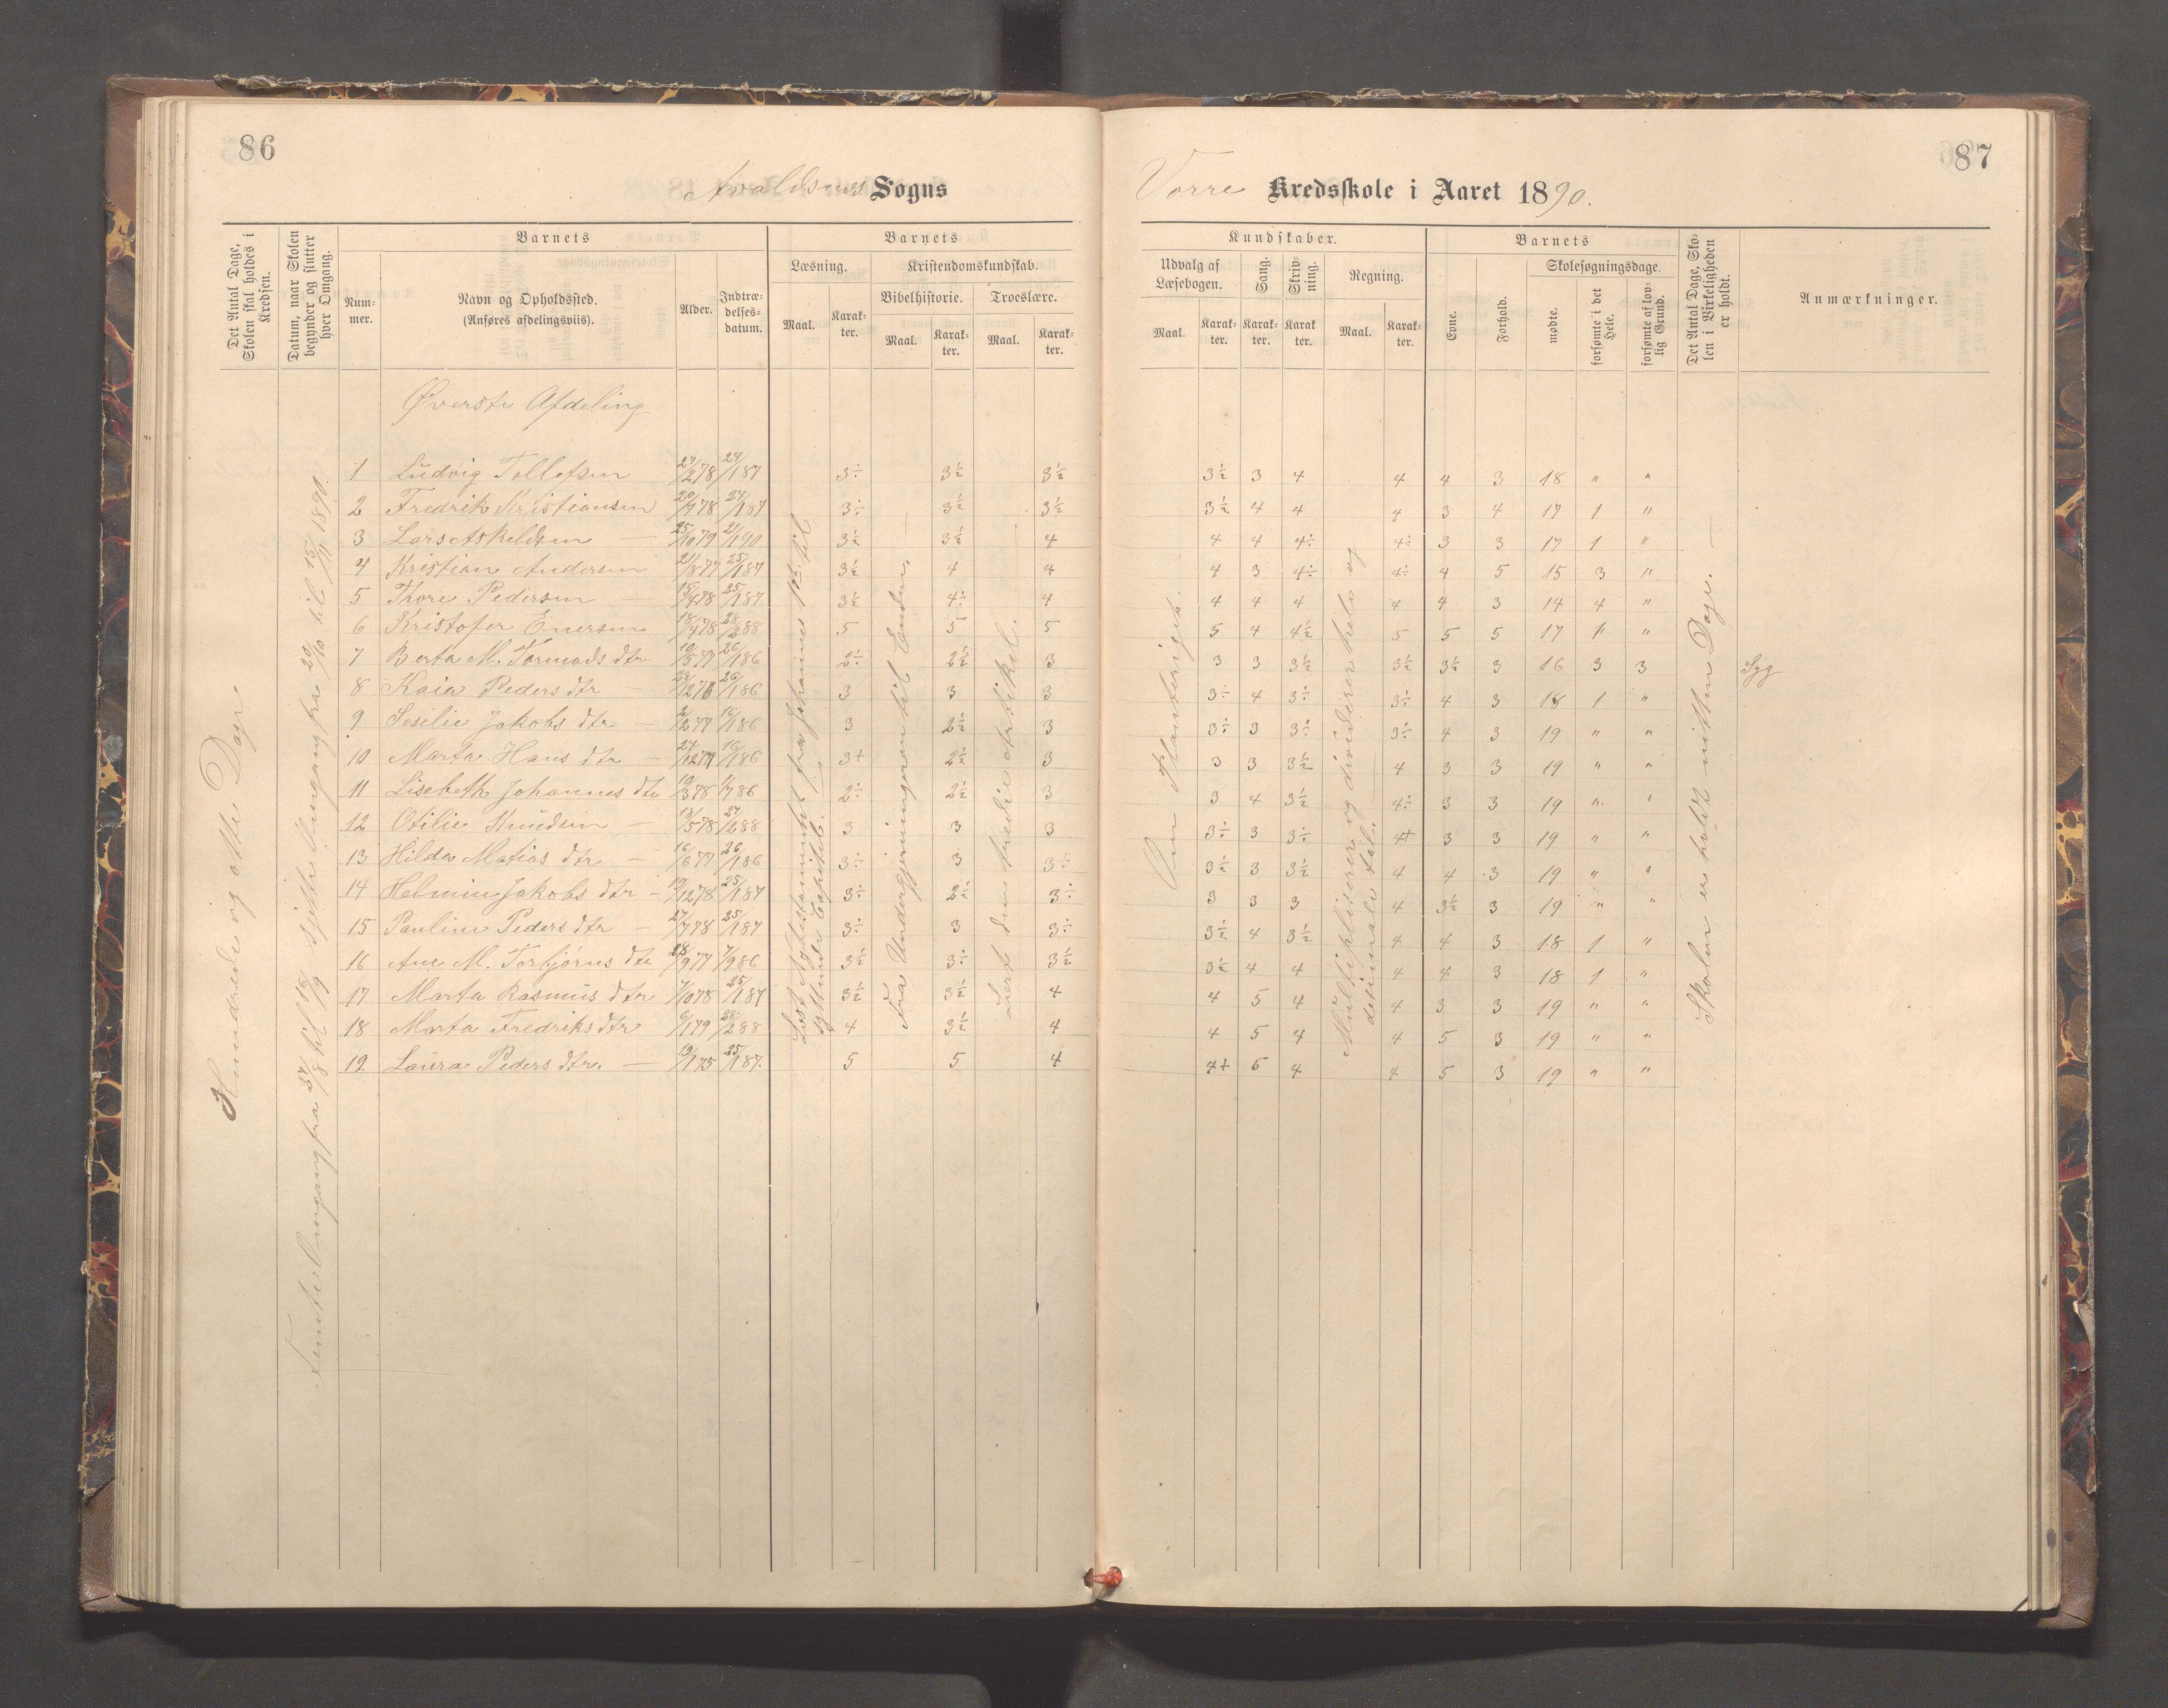 86
Avaldsnes Sogns
Det Antal Dage, Skolen skal holdes i Kredsen.
Datum, naar Skolen begynder og slutter hver Omgang.
Barnets
Barnets
Num-
mer.
Navn og Opholdssted.
(Anføres afdelingsviis).
Alder.
Indtræ-
delses-
datum.
Læsning.
Kristendomskundskab.
Bibelhistorie.
Troeslære.
Maal.
Karak-
ter.
Maal.
Karak-
ter.
Maal.
Karak-
ter.
Øverste Afdeling
1 Ludvig Tollefsen 27/2 78 24/1 87 3÷ 3½ 3½
2 Fredrik Kristiansen 20/7 78 24/1 87 3÷ 3½ 3½
3 Lars Askeldsen — 25/10 79 21/1 90 3½ 3½ 4
4 Kristian Andersen 21/8 77 25/1 87 3½ 4 4
5 Thore Pedersen — 15/4 78 25/1 87 3½ 4÷ 4
6 Kristofer Enersen 18/4 78 28/2 88 5 5 5
7 Berta M. Tormods dtr 10/5 77 26/1 86 2÷ 2½ 3
8 Kaia Peders dtr — 28/12 76 26/1 86 3 3 3
9 Sesilie Jakobs dtr — 2/2 77 16/1 86 3 2½ 3
10 Marta Hans dtr — 24/12 77 16/1 86 3+ 2½ 3
11 Lisebeth Johannes dtr 19/3 78 1/7 86 2÷ 2½ 3
12 Otilie Knudsen — 13/5 78 27/2 88 3 3 3
13 Hilda Matias dtr — 16/6 77 26/1 86 3÷ 3 3÷
14 Helmine Jakobs dtr — 19/12 78 25/1 87 3÷ 2½ 3÷
15 Pauline Peders dtr — 27/7 78 25/1 87 3÷ 3 3÷
16 Ane M. Torbjørns dtr 28/9 77 7/9 86 3½ 3÷ 3½
17 Marta Rasmus dtr 7/10 78 25/1 87 3½ 3½ 4
18 Marta Fredriks dtr 6/1 79 28/2 88 4 3½ 4
19. Laura Peders dtr. — 19/1 75 25/1 87. 5 5 4
Hundrede og otte Dage
Femte Omgang fra 27/8 til 16/9 sjette Omgang fra 20/10 til 15/11 1890.
Læst Nytestamente fra Johannes 1ste til
syttende Capitel.
Fra Undergjerningeren til Enden. —
Lært den tredie Artikel. —
87
Vorre Kredsskole i Aaret 1890.
Kundskaber.
Barnets
Udvalg af
Læsebogen.
Sang.
Skriv-
ning.
Regning.
Evne.
Forhold.
Skolesøgningsdage.
Maal.
Karak-
ter.
Karak-
ter.
Karak
ter.
Maal.
Karak-
ter.
mødte.
forsømte i det Hele.
forsømte af lov-
lig Grund.
Det Antal Dage, Sko-
len i Virkeligheden
er holdt.
Anmærkninger.
3½ 3 4 4 4 3 18 " "
3½ 4 4 4 3 4 17 1 "
4 4 4÷ 4÷ 3 3 17 1 "
4 3 4÷ 4÷ 4 5 15 3 "
4 4 4 4 4 3 14 4 "
5 4 4½ 5 5 5 17 1 "
3 3 3½ 3½ 3½ 3 16 3 3 Syg
3÷ 4 3÷ 3÷ 4 3 18 1 "
3÷ 3 3÷ 3÷ 4 3 19 " "
3 3 3½ 4 3 3 19 " "
3 4 3½ 4÷ 3 3 19 " "
3÷ 3 3÷ 4+ 3 3 19 " "
3½ 3 3½ 4 4 3 19 " "
3 3 3 4 3½ 3 19 " "
3½ 4 3½ 4 4 3 18 1 "
3½ 4 4 4 4 3 18 1 "
4 5 4 4 3 3 19 " "
4 5 4 4 5 3 19 " "
4+ 5 4 4 5 3 19 " "
Om Planteriget.
Multipliserer og dividerer hele og
desimale tal.
Skolen er holdt nitten Dage. —